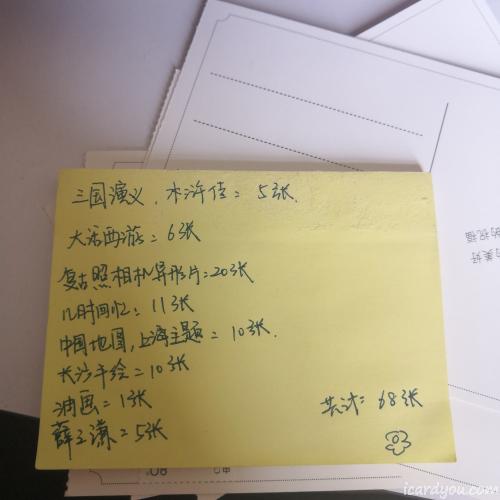 三国演义，水浒传：5张.
大话西游：6张
复古照相机异形片：20张
儿时回忆：11张
中国地图，上海主题：10张.
长沙手绘：10张
油画：1张
薛之谦：5张
共计：68张
的美好
的祝福
icardyou.com